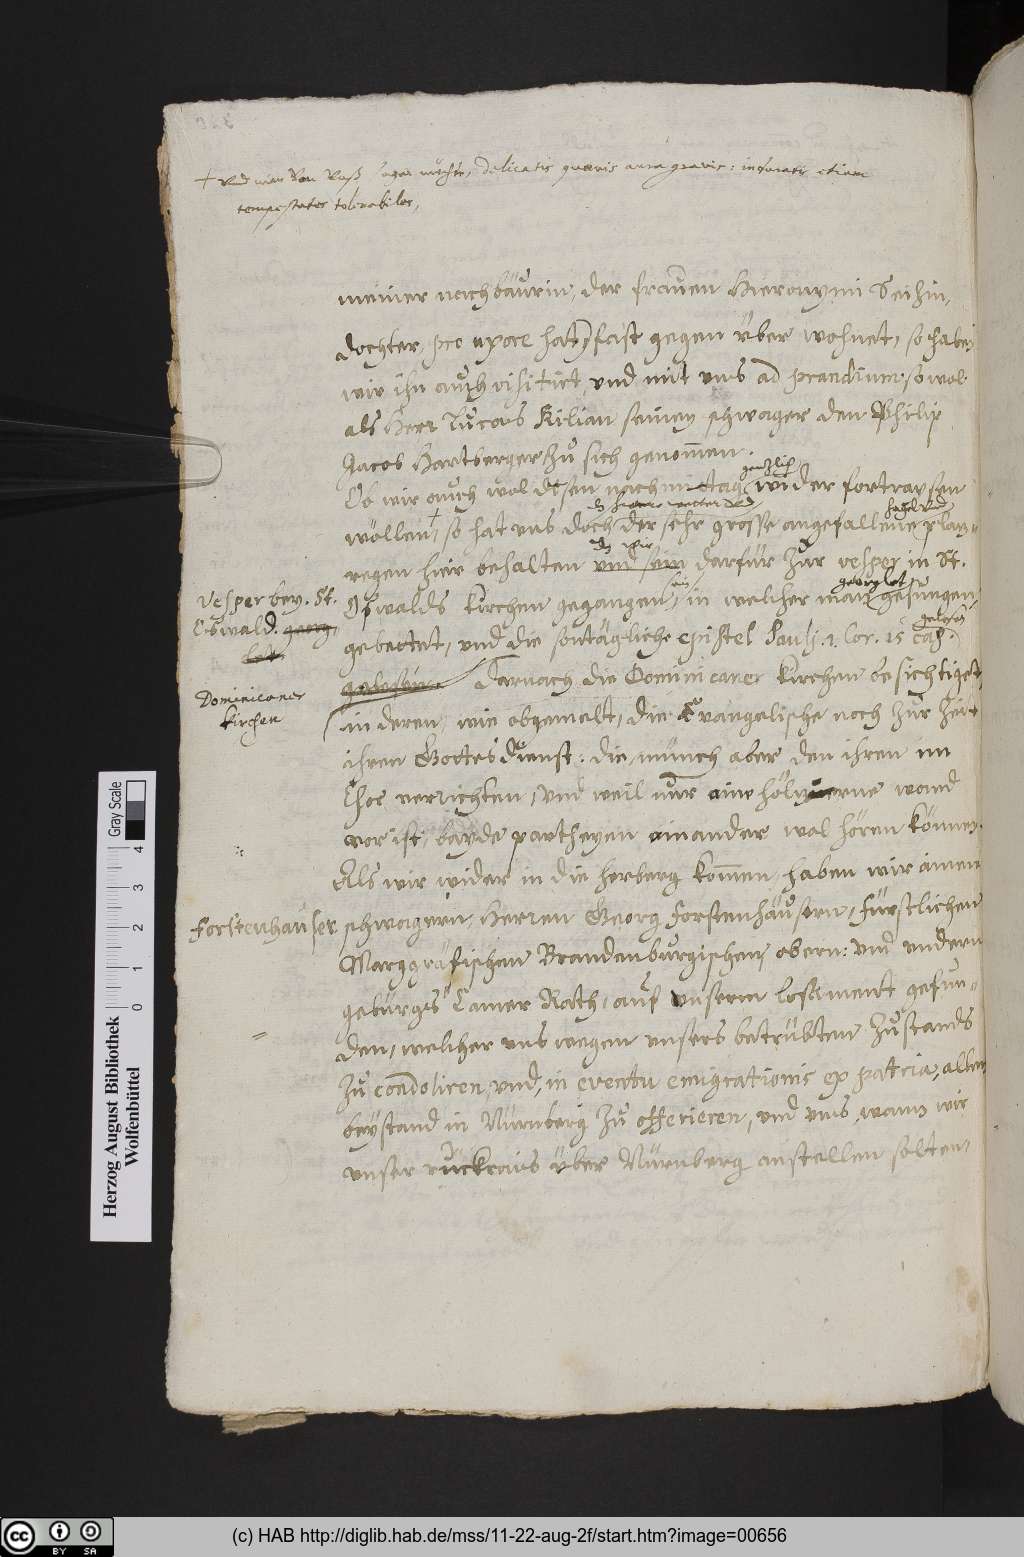 + und man von auß sagen möchte, Delicatis quævis aura gravis: induratis etiam
tempestates tolerabiles,
meiner nachbäurin, der frauen Hieronymi
dochter, pro uxore hat, fast gegen über wohnet, so haben
wir ihn auch visitirt, und mit uns ad prandium, so wol
als Herr Lucas Kilian seinen schwager den Philip
Jacob Hartberger zu sich genommen.
gentzlich
Ob wir auch wol disen nachmittag wider fortraysen
wöllen, + so hat uns doch der sehr grosse angefallene platz-
regen hier behalten und sein darfür zur vesper in St.
Vesper bey St.
Oswald. georg-
Oswalds kirchen gegangen, in welcher man gesungen,
gebettet, und die sontägliche epistel Pauli. 1. Cor. 15 cap.
gelesen
gelesen. Darnach die Dominicaner kirchen besichtiget,
Dominicaner
kirchen
in deren, wie obgemelt, die Evangelische noch zur zeit
ihren Gottesdienst: die münch aber den ihren im
Chor verrichten, und weil nur eine höltzerne wand
vor ist, bayde partheyen einander wol hören können.
Als wir wider in die herberg kommen, haben wir meinen
Forstenhauser
schwagern, Herren Georg Forstenhäusern, Fürstlichen
Marggräfischen Brandenburgischen, obern: und undern
gebürgs Camer Rath, auf unserm losament gefun-
den, welcher uns wegen unsers betrübten zustands
zu condoliren, und, in eventu emigrationis ex patria, allen
beystand in Nürnberg zu offeriren, und uns, wann wir
unser ruckrais über Nürnberg anstellen solten,
Gray Scale
0 1 2 3 4
Herzog August Bibliothek
Wolfenbüttel
cc BY SA
(c) HAB http://diglib.hab.de/mss/11-22-aug-2f/start.htm?image=00656